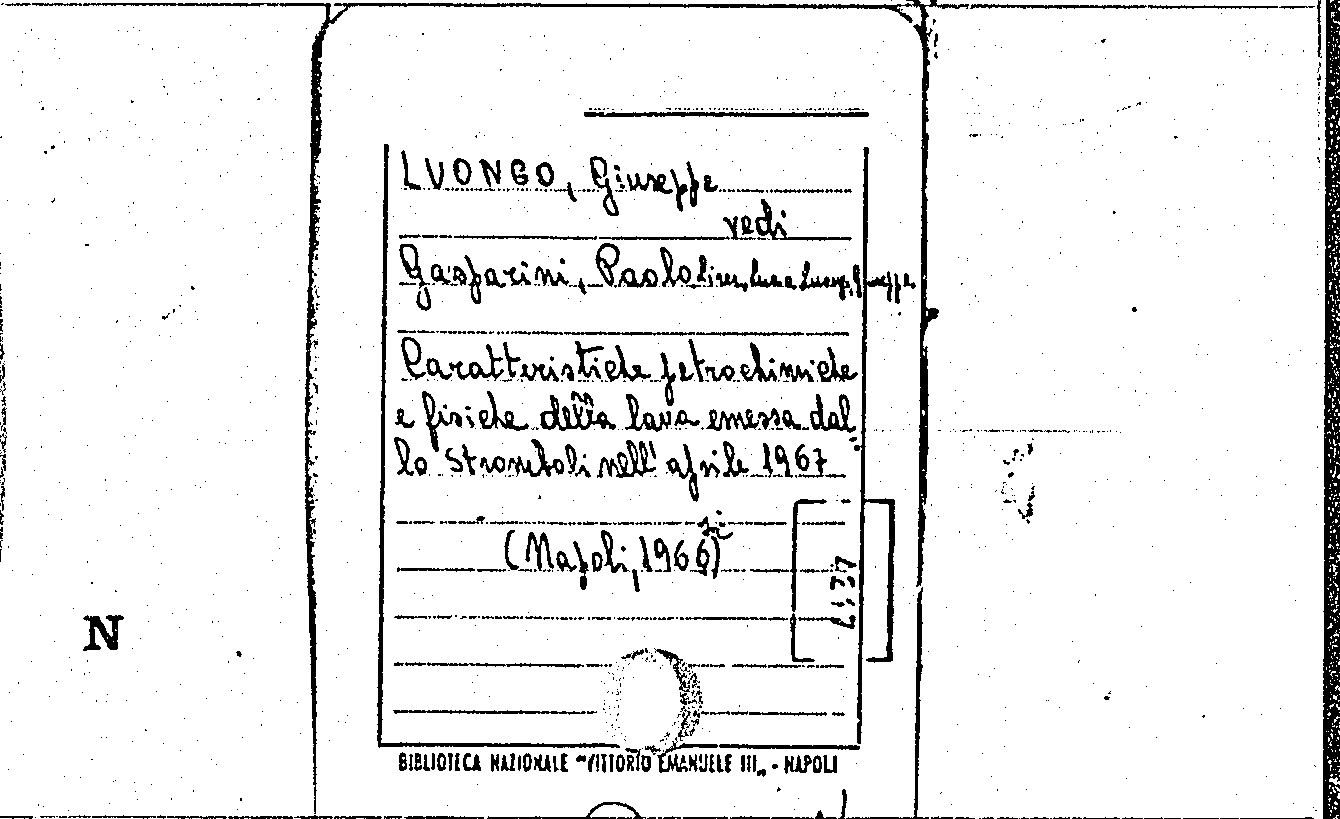 LUONGO, Giuseppe
vedi
Gasparini, Paolo Lirer, Lucio Luongo, Giuseppe
Caratteristiche petrochimiche
e fisiche della lava emessa dal
lo Stromboli nell' aprile 1967
si
(Napoli, 1966)
N
BIBLIOTECA NAZIONALE "VITTORIO EMANUELE III„ - NAPOLI